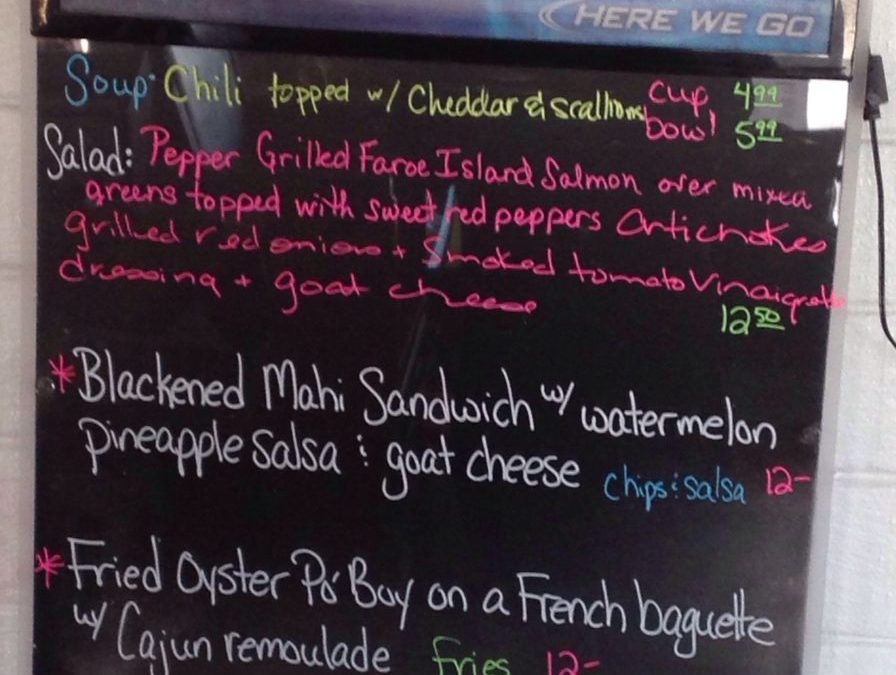 HERE WE GO
Soup: Chili topped w/ Cheddar & scallions cup 4.99
bowl 5.99
Salad: Pepper Grilled Faroe Island Salmon over mixed
greens topped with sweet red peppers Artichokes
grilled red onions + Smoked tomato Vinaigrette
dressing + goat cheese
12.50
*Blackened Mahi Sandwich w/ watermelon
pineapple salsa & goat cheese chips & salsa 12-
*Fried Oyster Po' Boy on a French baguette
w/ Cajun remoulade fries 12-